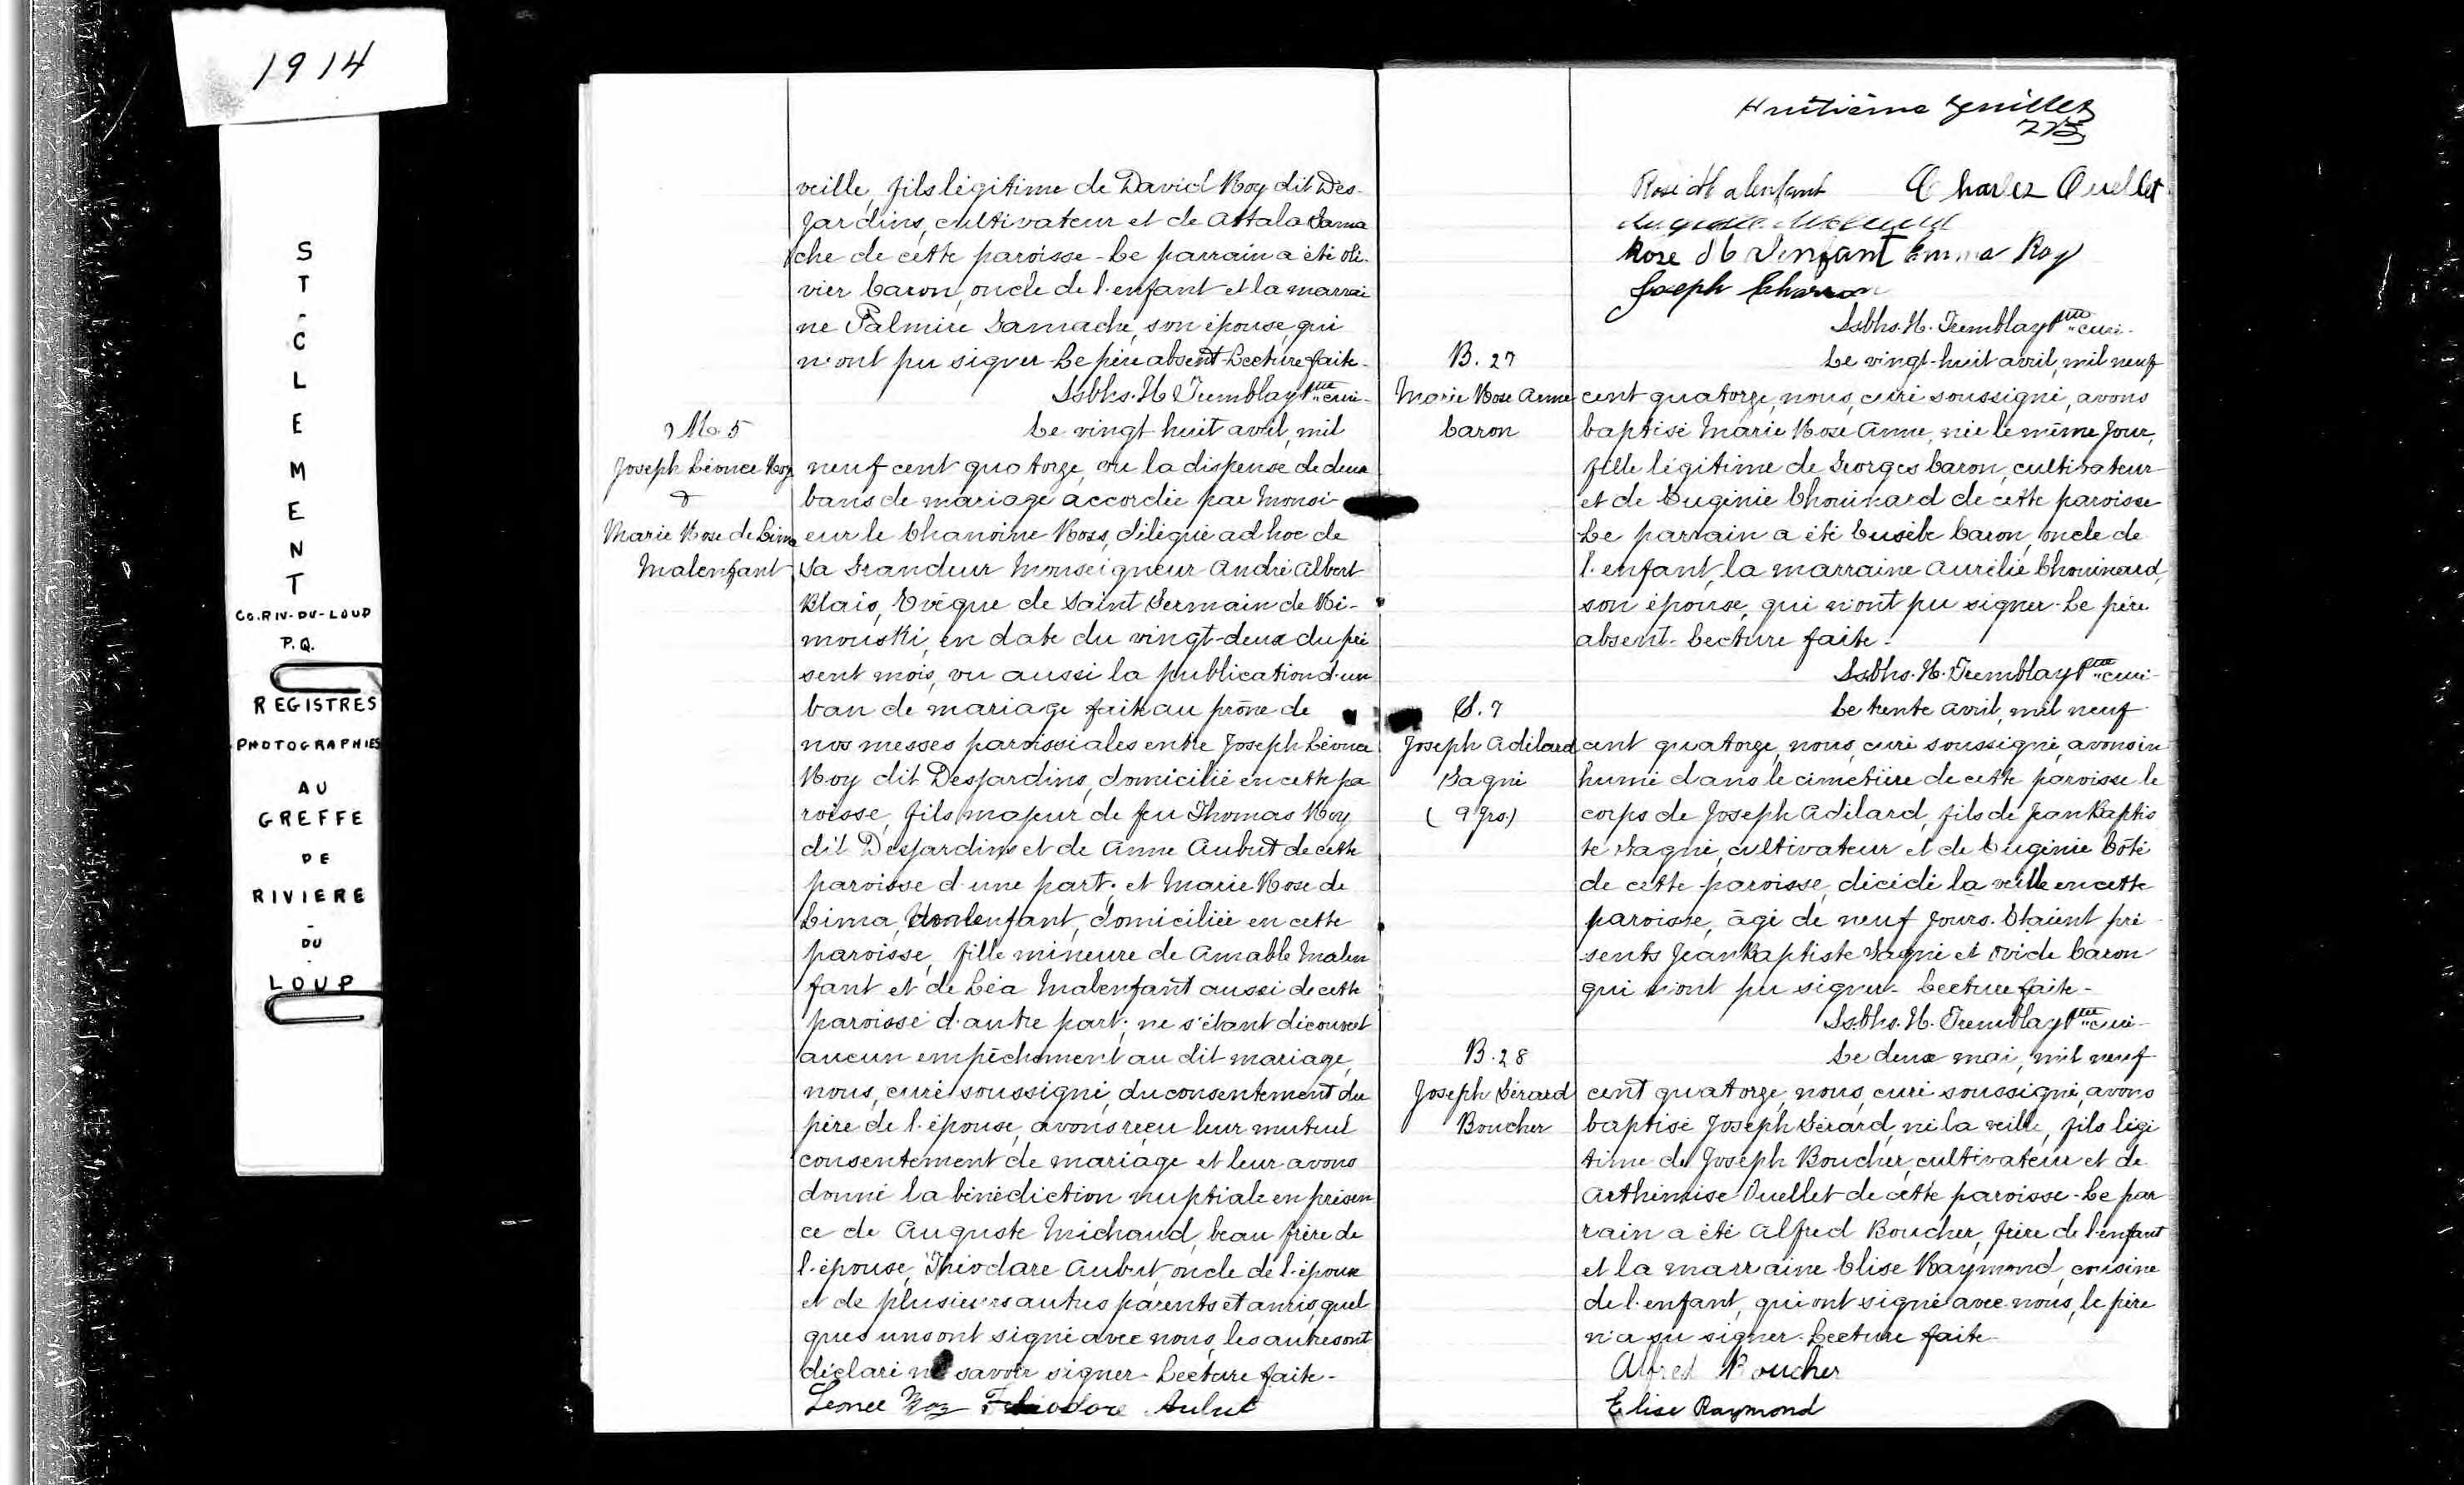 1914
ST-CLEMENT
CO. RIV-DU-LOUP
P.Q.
REGISTRES
PHOTOGRAPHIES
AU
GREFFE
DE
RIVIERE
-
DU
-
LOUP
veille, fils légitime de David Roy dit Des-
jardins, cultivateur et de Attala Gama
che de cette paroisse - Le parrain a été Oli-
vier Caron, oncle de l'enfant et la marrai
ne Palmire Gamache, son épouse, qui
n'ont pu signer - Le père absent Lecture faite -
Ssbhs. H. Tremblay Ptre curé -
M. 5
Joseph Léonce Roy
&
Marie Rose de Lima
Malenfant
Le vingt-huit avril, mil
neuf cent quatorze, vu la dispense de deux
bans de mariage accordée par Monsi-
eur le Chanoine Ross, délégué ad hoc de
Sa Grandeur Monseigneur André Albert
Blais, Evêque de Saint Germain de Ri-
mouski, en date du vingt-deux du pré
sent mois, vu aussi la publication d'un
ban de mariage faite au prône de
nos messes paroissiales entre Joseph Léonce
Roy dit Desjardins, domicilié en cette pa
roisse, fils majeur de feu Thomas Roy
dit Desjardins et de Anne Aubut de cette
paroisse d'une part; et Marie Rose de
Lima Malenfant, domiciliée en cette
paroisse, fille mineure de Amable Malen
fant et de Léa Malenfant aussi de cette
paroisse d'autre part; ne s'étant découvert
aucun empêchement au dit mariage,
nous, curé soussigné, du consentement du
père de l'épouse, avons reçu leur mutuel
consentement de mariage et leur avons
donné la bénédiction nuptiale en présen
ce de Auguste Michaud, beau frère de
l'épouse, Théodore Aubut, oncle de l'époux
et de plusieurs autres parents et amis, quel
ques uns ont signé avec nous, les autres ont
déclaré ne savoir signer - Lecture faite -
Leonce Roy Théodore Aubut
Huitième feuillet
Rose Malenfant Charles Ouellet
Rose Malenfant Emma Roy
Joseph Charron
Ssbhs. H. Tremblay Ptre curé -
B. 27
Marie Rose Anne
Caron
Le vingt-huit avril, mil neuf
cent quatorze, nous, curé soussigné, avons
baptisé Marie Rose Anne, née le même jour,
fille légitime de Georges Caron, cultivateur
et de Eugénie Chouinard de cette paroisse
Le parrain a été Eusèbe Caron, oncle de
l'enfant, la marraine Aurélie Chouinard,
son épouse, qui n'ont pu signer - Le père
absent - Lecture faite -
Ssbhs. H. Tremblay Ptre curé -
S. 7
Joseph Adélard
Gagné
(9 jrs.)
Le trente avril, mil neuf
cent quatorze, nous, curé soussigné, avons in
humé dans le cimetière de cette paroisse le
corps de Joseph Adélard, fils de Jean Baptis
te Gagné, cultivateur et de Eugénie Côté
de cette paroisse, décédé la veille en cette
paroisse, âgé de neuf jours. Etaient pré -
sents Jean Baptiste Gagné et Ovide Caron
qui n'ont pu signer - Lecture faite -
Ssbhs. H. Tremblay Ptre curé -
B. 28
Joseph Gérard
Boucher
Le deux mai, mil neuf
cent quatorze, nous, curé soussigné, avons
baptisé Joseph Gérard, né la veille, fils légi
time de Joseph Boucher, cultivateur et de
Arthémise Ouellet de cette paroisse - Le par
rain a été Alfred Boucher, frère de l'enfant
et la marraine Elise Raymond, cousine
de l'enfant, qui ont signé avec nous, le père
n'a pu signer - Lecture faite
Alfred Boucher
Elise Raymond